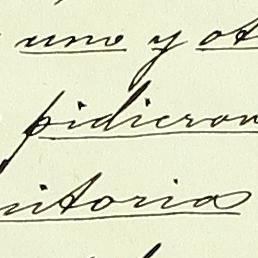 uno y ot
pidieron
nitorias